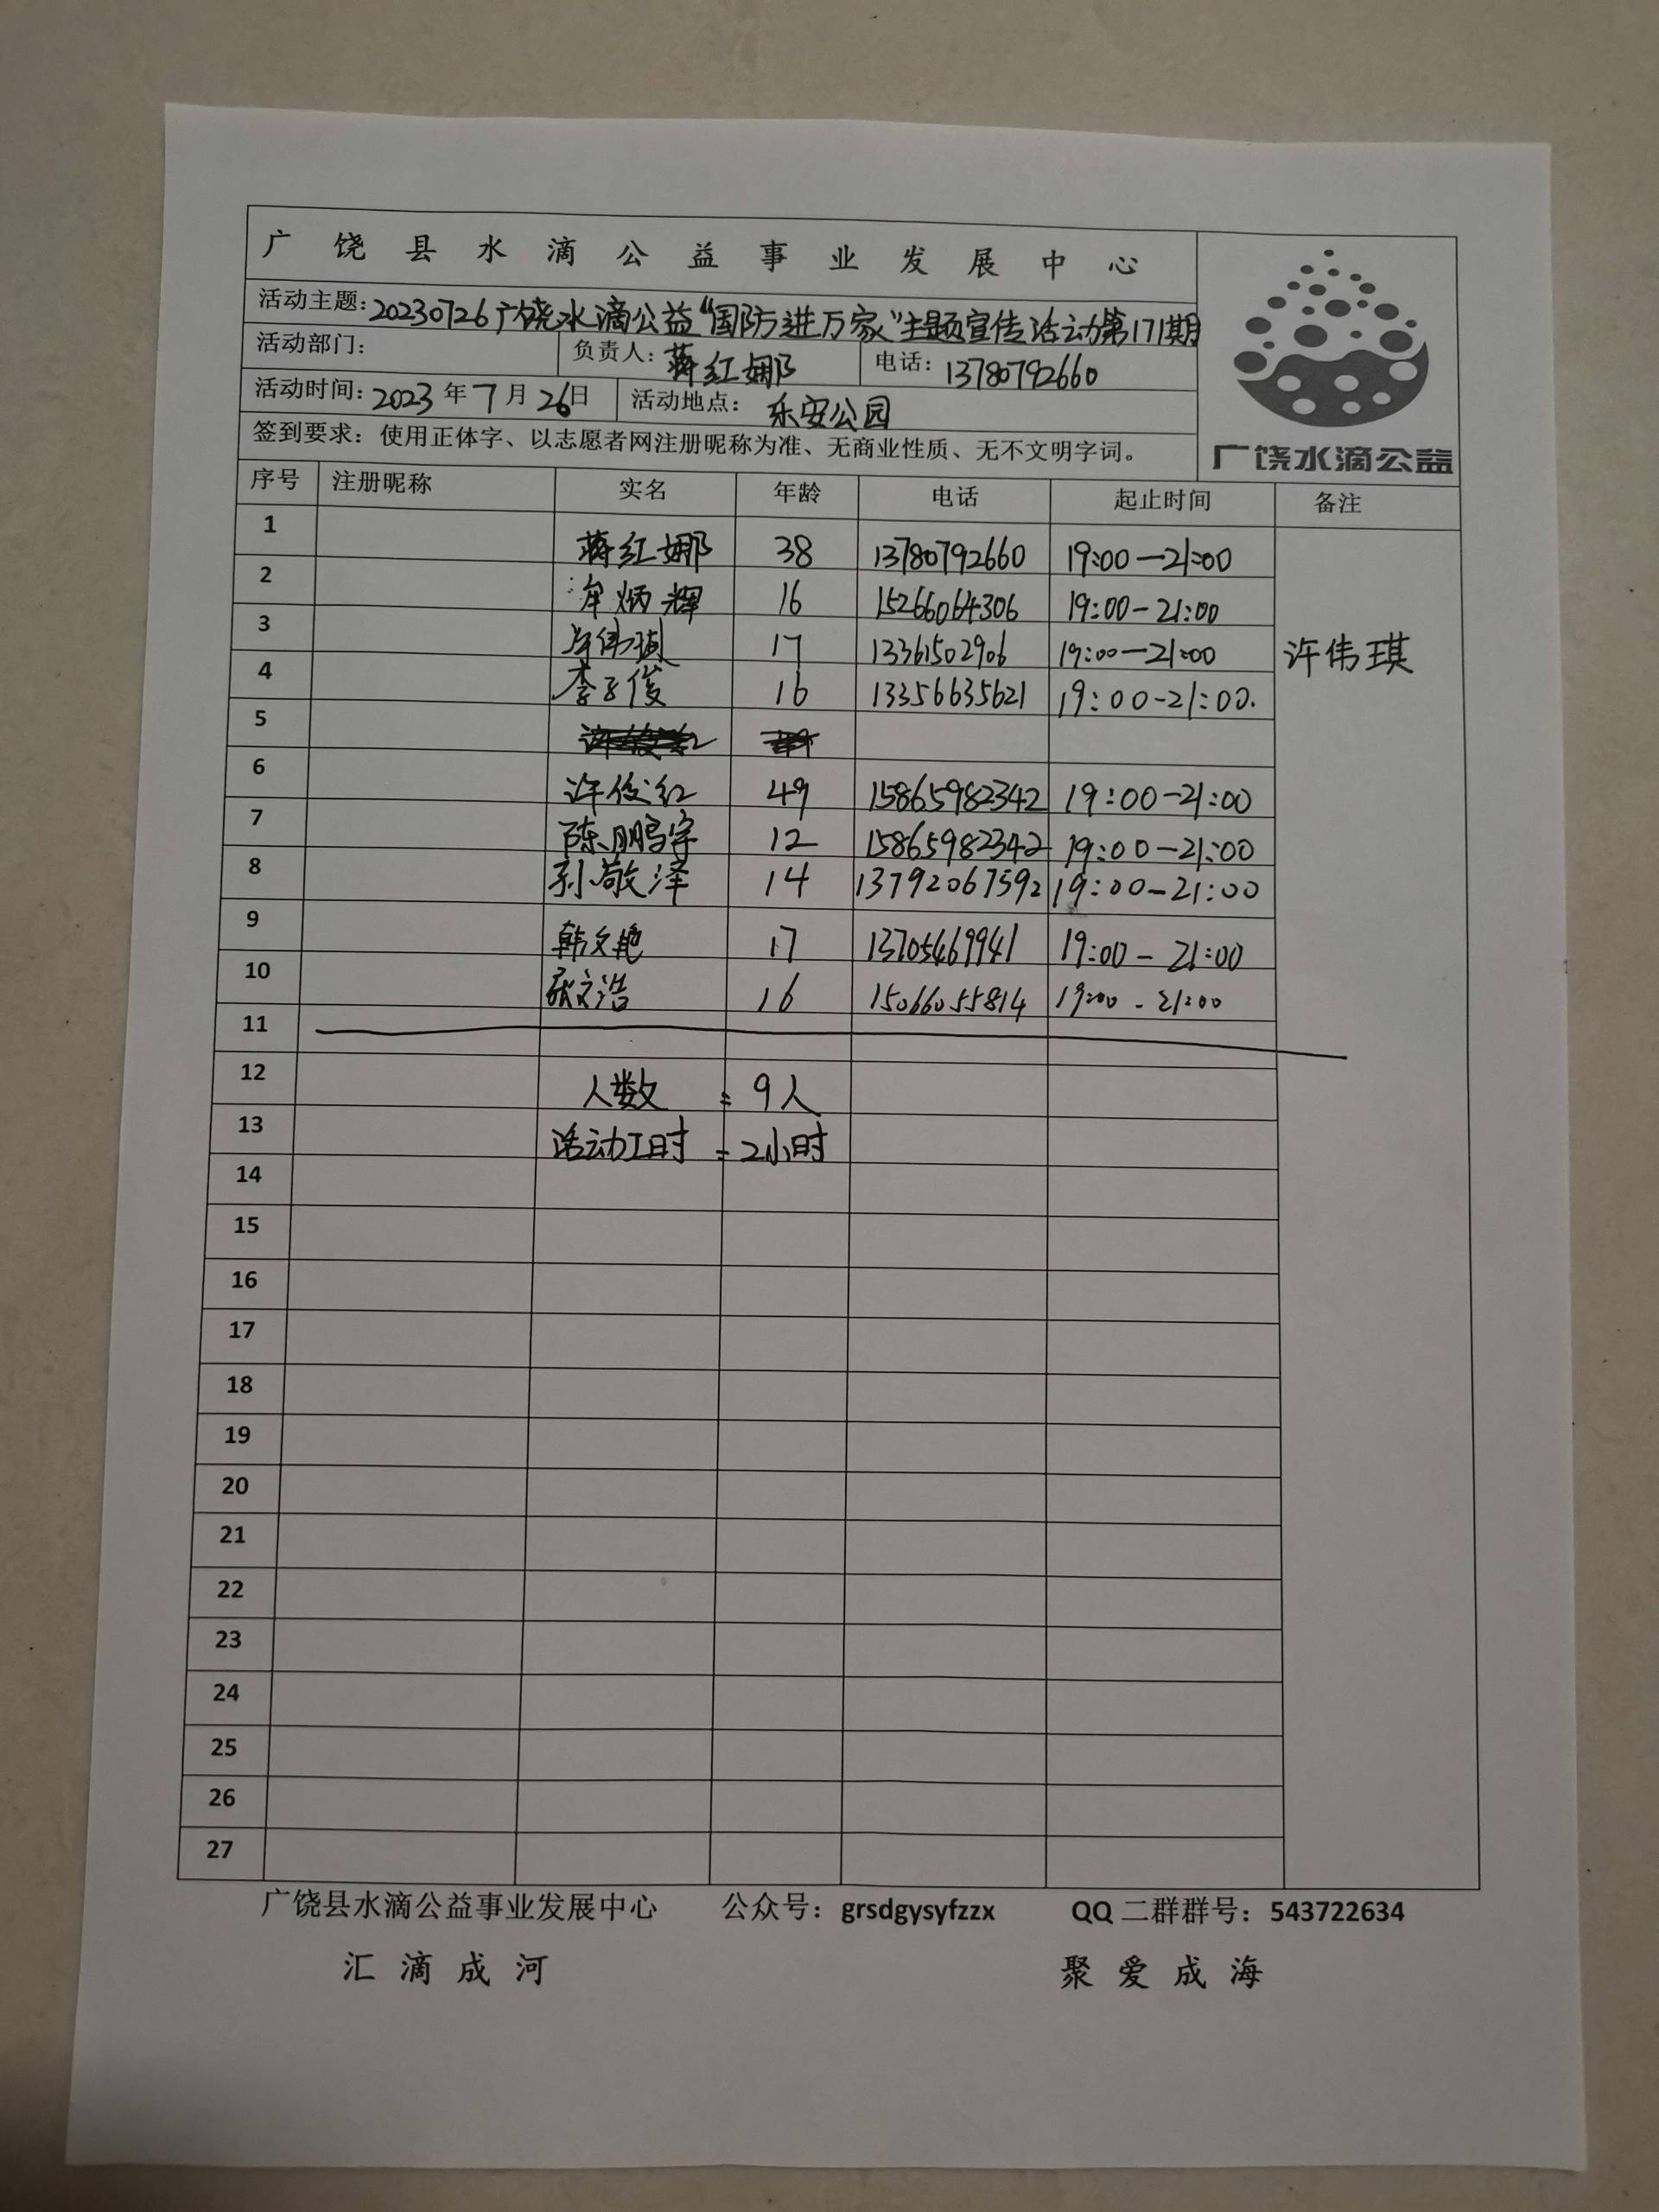 广饶县水滴公益事业发展中心
活动主题：20230726广饶水滴公益“国防进万家”主题宣传活动第171期
活动部门： 负责人：蒋红娜 电话：13780792660
活动时间：2023年7月26日 活动地点：乐安公园
签到要求：使用正体字、以志愿者网注册昵称为准、无商业性质、无不文明字词。
广饶水滴公益
序号 注册昵称 实名 年龄 电话 起止时间 备注
1 蒋红娜 38 13780792660 19:00—21:00
2 牟炳辉 16 15266064306 19:00-21:00
3 许伟琪 17 13361502906 19:00—21:00 许伟琪
4 李子俊 16 13356635621 19:00-21:00.
5
6 许俊红 49 15865982342 19:00-21:00
7 陈鹏宇 12 15865982342 19:00-21:00
8 孙敬泽 14 13792067592 19:00-21:00
9 韩文艳 17 13705469941 19:00-21:00
10 张文浩 16 15066055814 19:00-21:00
11
12 人数：9人
13 活动工时：2小时
14
15
16
17
18
19
20
21
22
23
24
25
26
27
广饶县水滴公益事业发展中心 公众号：grsdgysyfzzx QQ二群群号：543722634
汇滴成河 聚爱成海